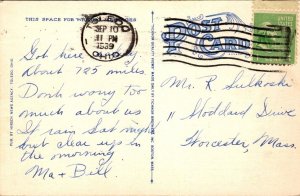 THIS SPACE FOR
TOLEDO
SEP 10
11 PM
1939
OHIO
POST CARD
Got here
About 725 miles
Don't worry too
much about us
It rain Sat night
but clear up in
the morning
Ma + Bill
Mr. R Sulkoski
11 Stoddard Drive
Worcester, Mass.